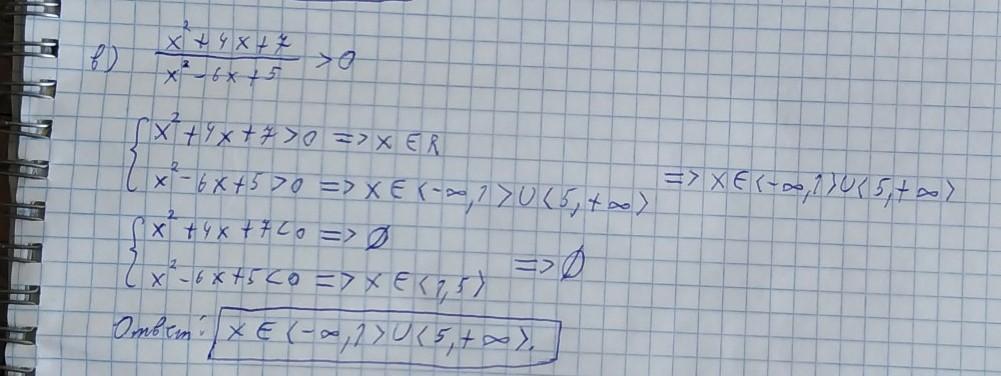 в) x²+4x+7 / x²-6x+5 >0
x²+4x+7>0 => x ∈ R
x²-6x+5>0 => x ∈ <-∞,1>∪<5,+∞> => x ∈ <-∞,1>∪<5,+∞>
x²+4x+7<0 => ∅
x²-6x+5<0 => x ∈ <1,5> => ∅
Ответ: x ∈ <-∞,1>∪<5,+∞>.